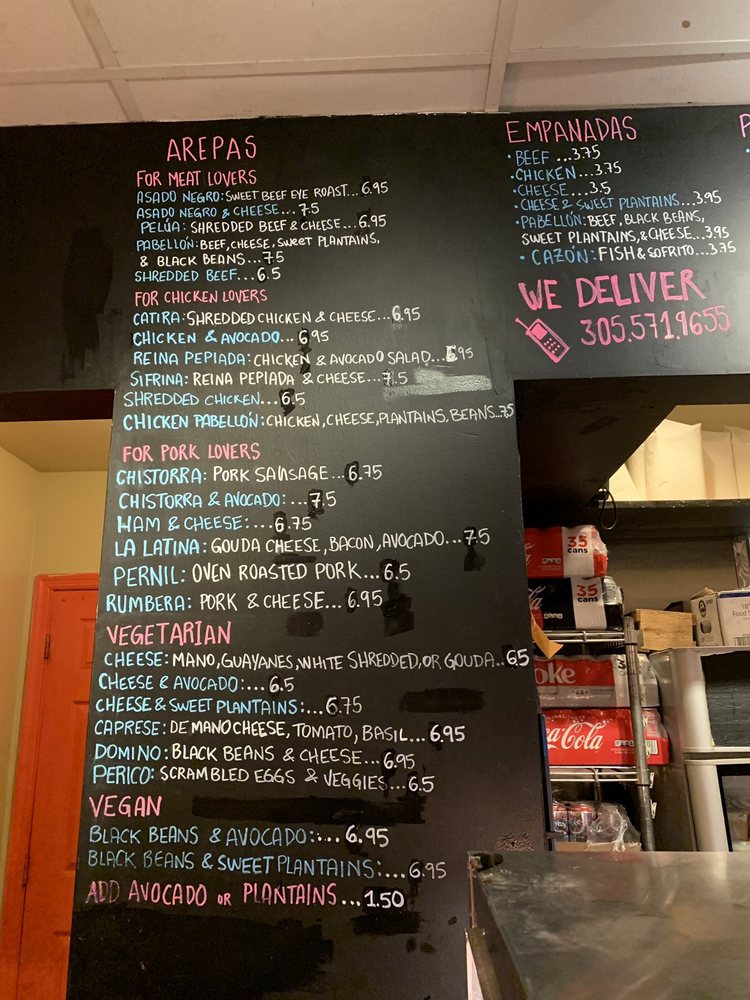 AREPAS
FOR MEAT LOVERS
ASADO NEGRO: SWEET BEEF EYE ROAST... 6.95
ASADO NEGRO & CHEESE... 7.5
PELÚA: SHREDDED BEEF & CHEESE... 6.95
PABELLÓN: BEEF, CHEESE, SWEET PLANTAINS,
& BLACK BEANS... 7.5
SHREDDED BEEF... 6.5
FOR CHICKEN LOVERS
CATIRA: SHREDDED CHICKEN & CHEESE... 6.95
CHICKEN & AVOCADO... 6.95
REINA PEPIADA: CHICKEN & AVOCADO SALAD... 6.95
SIFRINA: REINA PEPIADA & CHEESE... 7.5
SHREDDED CHICKEN... 6.5
CHICKEN PABELLÓN: CHICKEN, CHEESE, PLANTAINS, BEANS... 7.5
FOR PORK LOVERS
CHISTORRA: PORK SAUSAGE... 6.75
CHISTORRA & AVOCADO:... 7.5
HAM & CHEESE:... 6.75
LA LATINA: GOUDA CHEESE, BACON, AVOCADO... 7.5
PERNIL: OVEN ROASTED PORK... 6.5
RUMBERA: PORK & CHEESE... 6.95
VEGETARIAN
CHEESE: MANO, GUAYANES, WHITE SHREDDED, OR GOUDA.. 6.5
CHEESE & AVOCADO:... 6.5
CHEESE & SWEET PLANTAINS:... 6.75
CAPRESE: DE MANO CHEESE, TOMATO, BASIL... 6.95
DOMINO: BLACK BEANS & CHEESE... 6.95
PERICO: SCRAMBLED EGGS & VEGGIES... 6.5
VEGAN
BLACK BEANS & AVOCADO:... 6.95
BLACK BEANS & SWEET PLANTAINS:... 6.95
ADD AVOCADO OR PLANTAINS... 1.50
EMPANADAS
• BEEF ... 3.75
• CHICKEN... 3.75
• CHEESE... 3.5
• CHEESE & SWEET PLANTAINS... 3.95
• PABELLÓN: BEEF, BLACK BEANS,
SWEET PLANTAINS, & CHEESE... 3.95
• CAZÓN: FISH & SOFRITO... 3.75
WE DELIVER
305.571.9655
P
35
cans
35
cans
oke
Coca-Cola